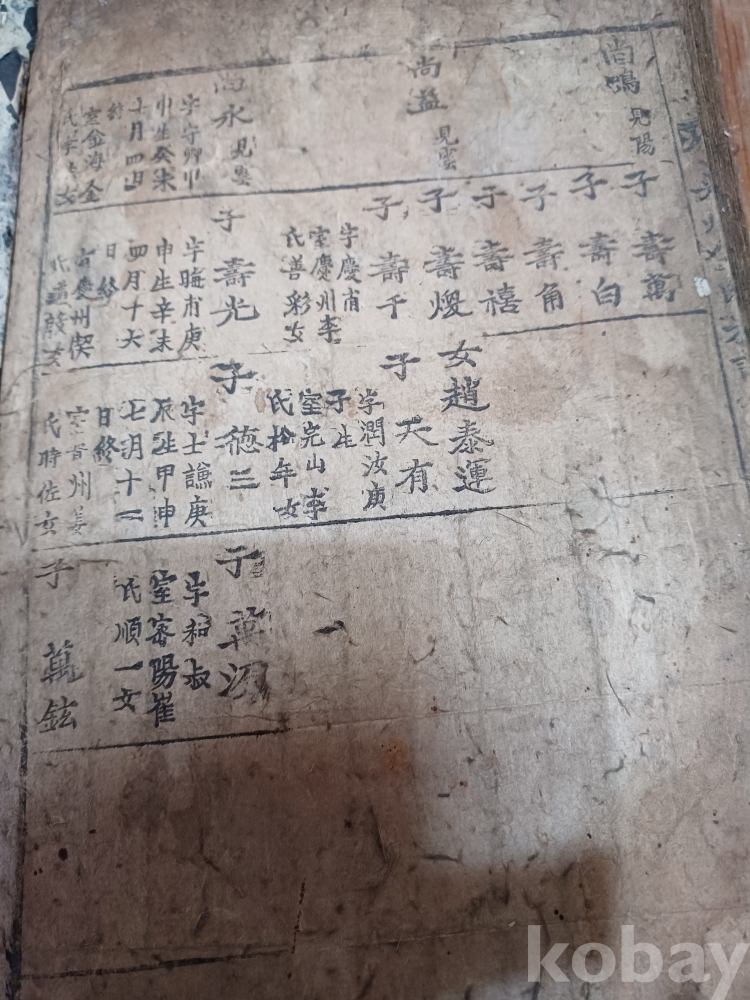 尚鳴 見陽
尚益 見雲
永 見雲
字守卿甲
申生癸未
十月四日
終
室金海金
氏 女
子 壽萬
子 壽白
子 壽角
子 壽禧
子 壽
子 壽千
字慶甫
室慶州李
氏善彩女
子 壽光
字晦甫庚
申生辛未
四月十六
日終
室慶州
氏 女
女趙泰運
子 天有
字潤汝庚
子生
室完山李
氏松年女
子 德三
字士謙庚
辰生甲申
七月十二
日終
室晋州姜
氏時佐女
子
字和叔
室審陽崔
氏順一女
子 萬鉉
kobay